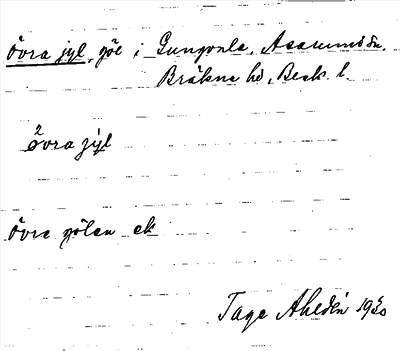 Övra jyl, göl i Gungvala, Asarums sn.
Bräkne hd, Blek. l.
2
övra jyl
Övre gölen ek
Tage Ahldén 1930